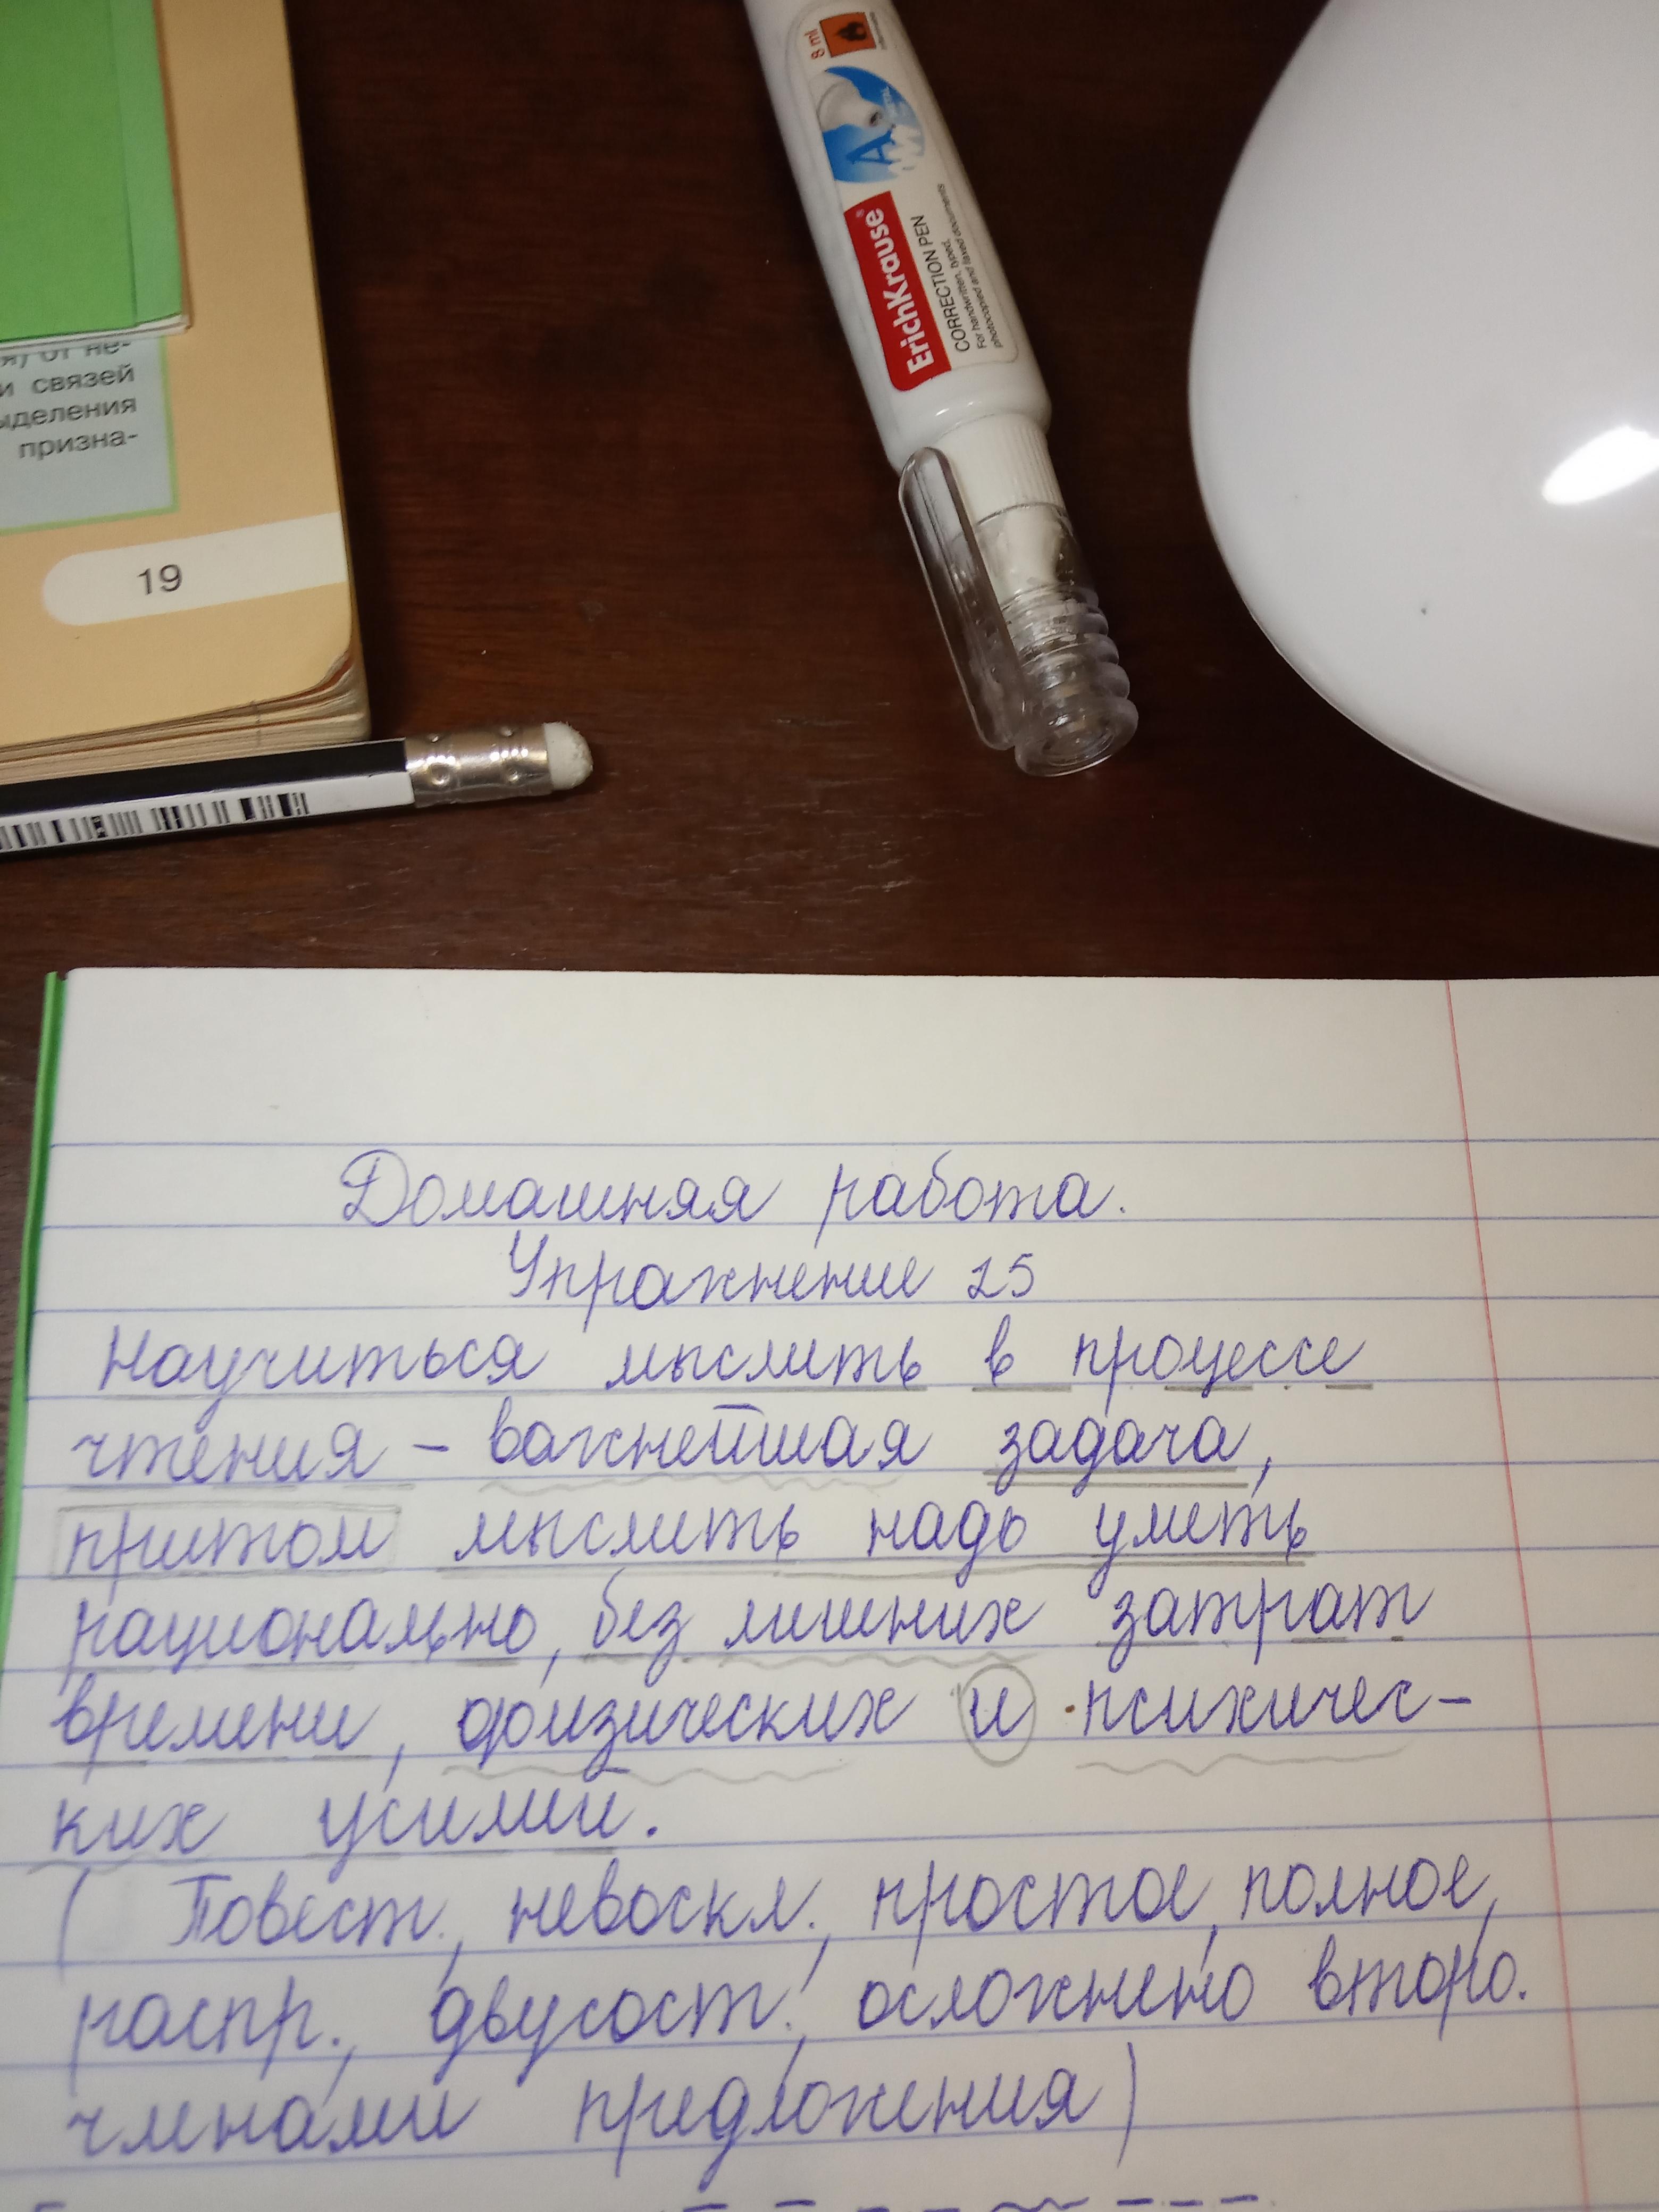 я) от не-
и связей
ыделения
призна-
19
8 ml
ErichKrause®
CORRECTION PEN
For handwritten, typed,
photocopied and faxed documents
Домашняя работа.
Упражнение 25
Научиться мыслить в процессе
чтения – важнейшая задача,
притом мыслить надо уметь
рационально, без лишних затрат
времени, физических и психичес-
ких усилий.
( Повест., невоскл., простое, полное,
распр., двусост., осложнено вторo.
членами предложения)